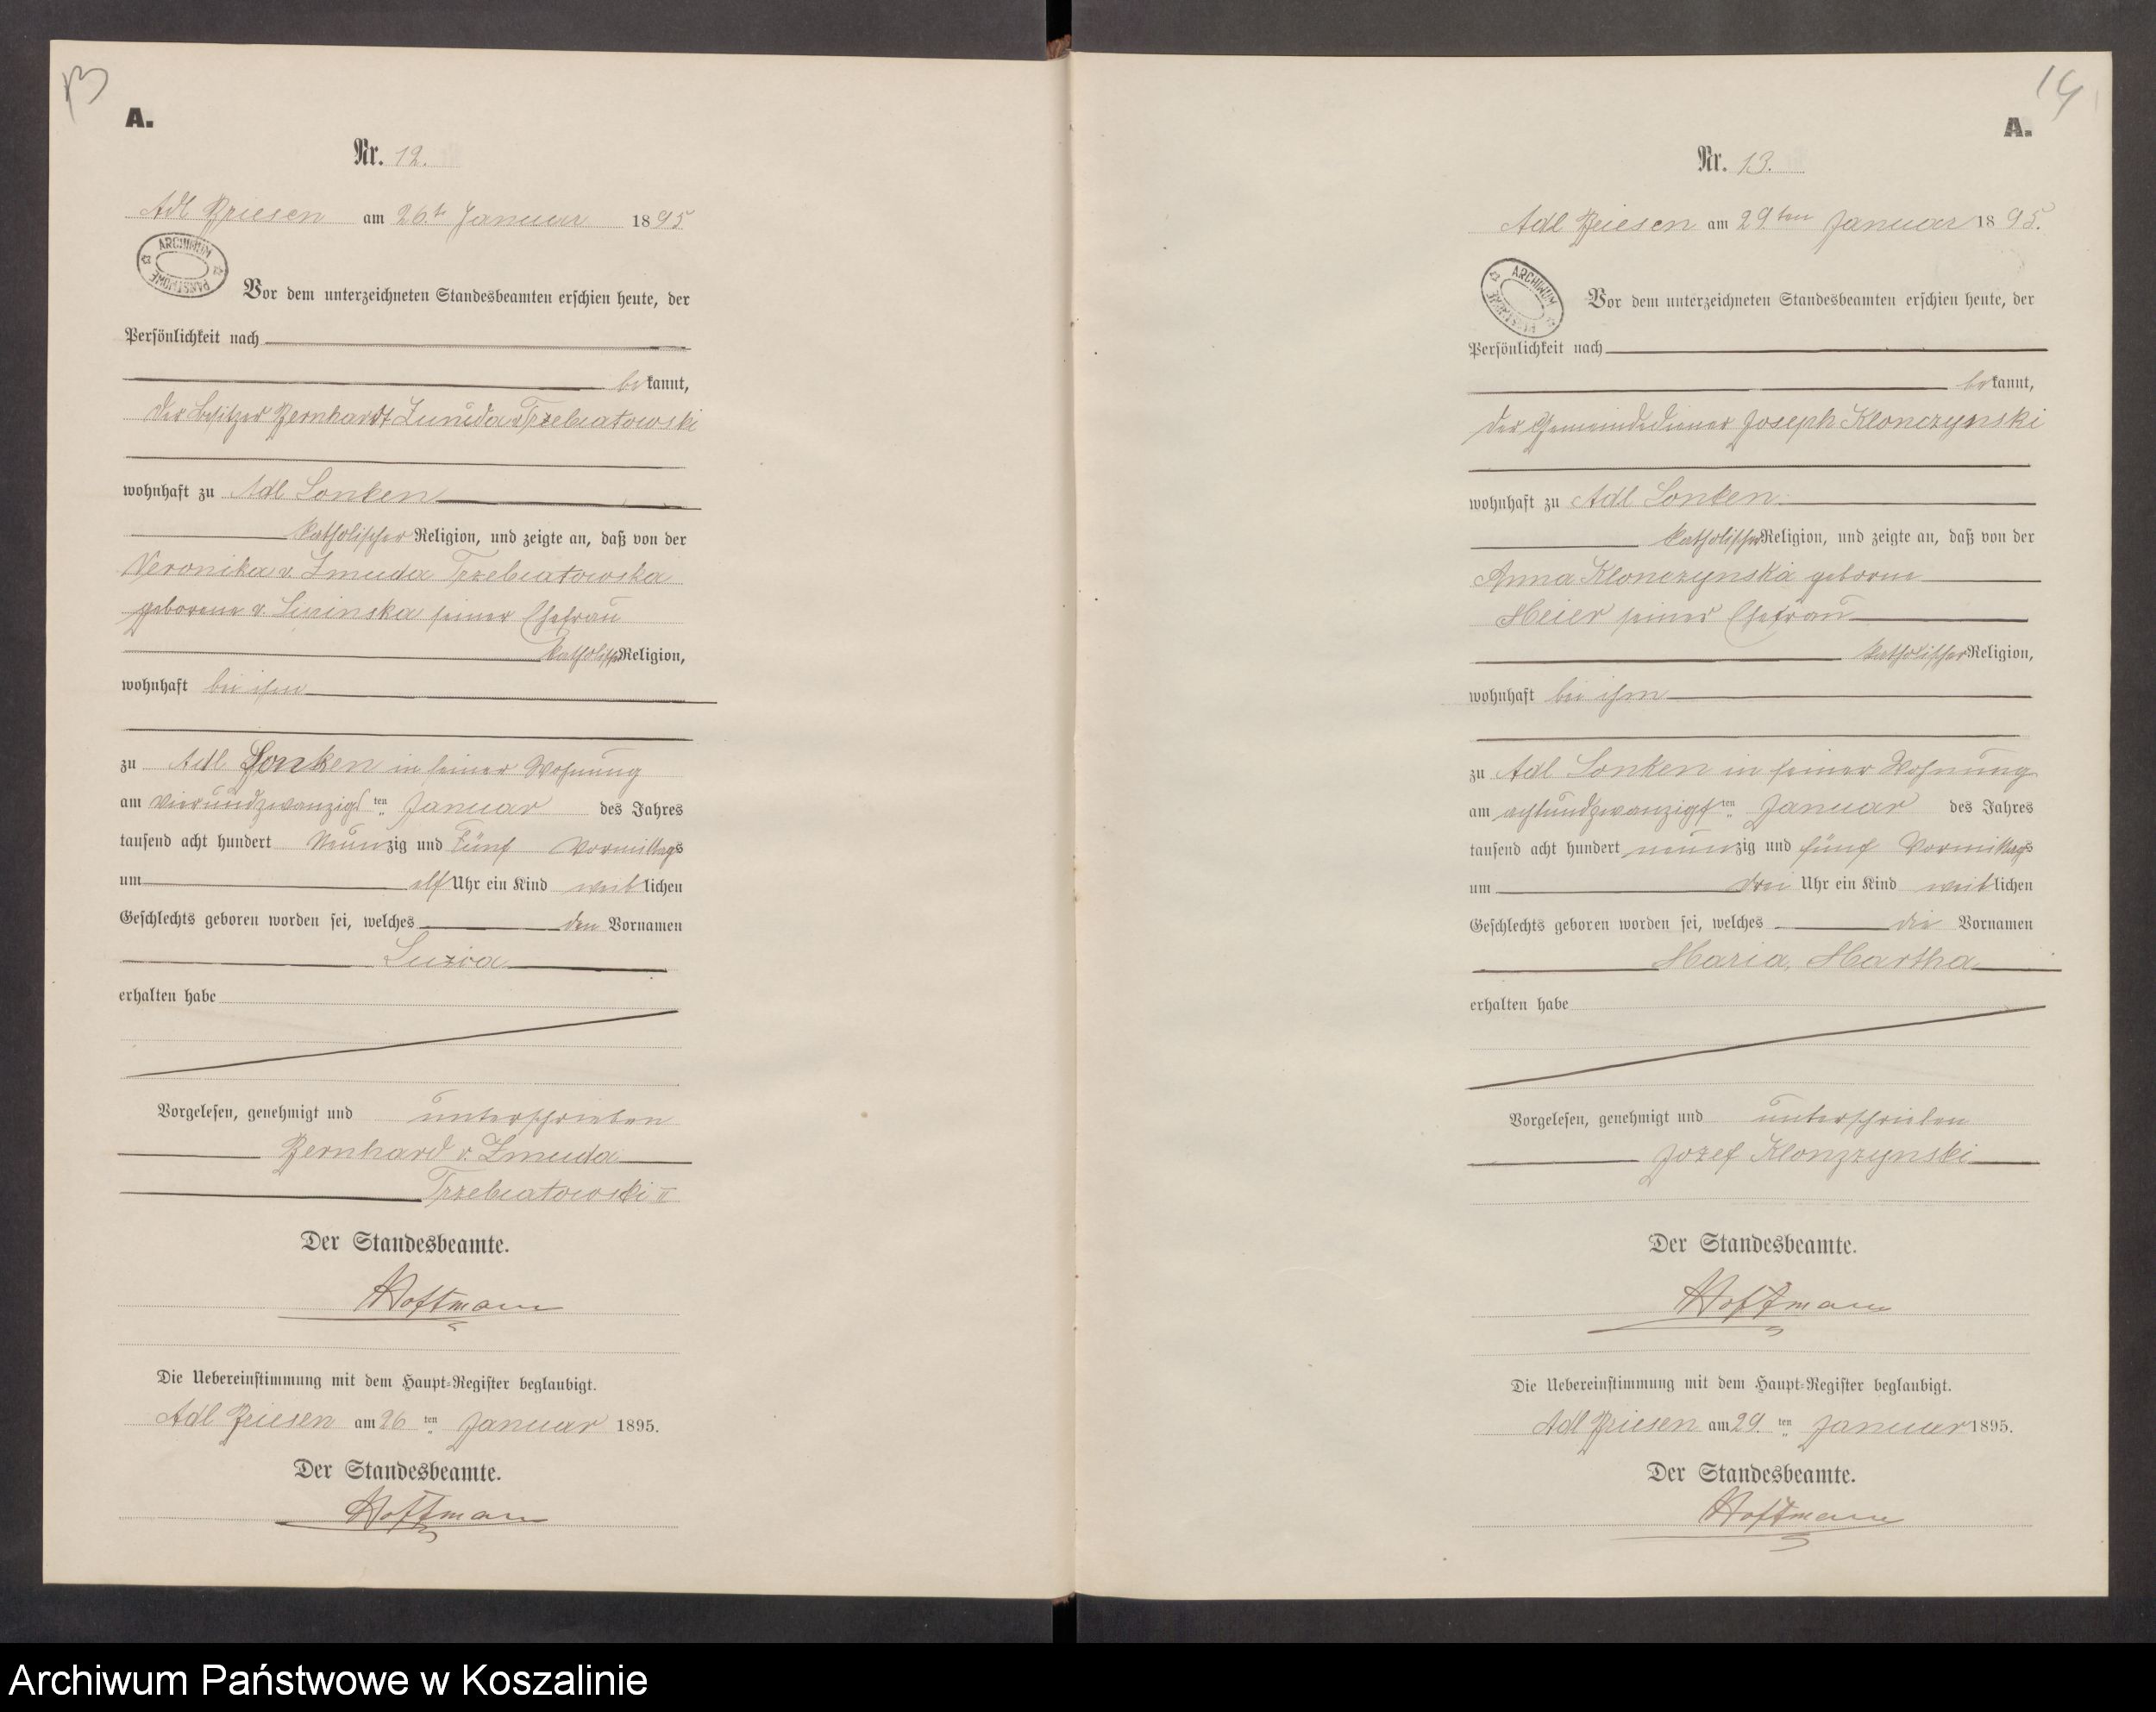 13
A.
Nr. 12.
Adl Briesen am 26.t Januar 1895
ARCHIWUM PAŃSTWOWE
Vor dem unterzeichneten Standesbeamten erschien heute, der
Persönlichkeit nach
bekannt,
der Besitzer Bernhardt Zmuda v Trzebiatowski
wohnhaft zu Adl Lonken
katholischer Religion, und zeigte an, daß von der
Veronika v. Zmuda Trzebiatowska
geborene v. seiner Ehefrau
katholischer Religion,
wohnhaft bei ihm
zu Adl Lonken in seiner Wohnung
am vierundzwanzigsten Januar des Jahres
tausend acht hundert Neunzig und Fünf Vormittags
um elf Uhr ein Kind weiblichen
Geschlechts geboren worden sei, welches den Vornamen
Luzia
erhalten habe
Vorgelesen, genehmigt und unterschrieben
Bernhard v. Zmuda
Trzebiatowski II
Der Standesbeamte.
Hoffmann
Die Uebereinstimmung mit dem Haupt-Register beglaubigt.
Adl Briesen am 26ten Januar 1895.
Der Standesbeamte.
Hoffmann
14
A.
Nr. 13.
Adl Briesen am 29ten Januar 1895.
ARCHIWUM PAŃSTWOWE
Vor dem unterzeichneten Standesbeamten erschien heute, der
Persönlichkeit nach
bekannt,
der Gemeindediener Joseph Klonczynski
wohnhaft zu Adl Lonken
katholischer Religion, und zeigte an, daß von der
Anna Klonczynska geborne
Meier seiner Ehefrau
katholischer Religion,
wohnhaft bei ihm
zu Adl Lonken in seiner Wohnung
am achtundzwanzigsten Januar des Jahres
tausend acht hundert neunzig und fünf Vormittags
um drei Uhr ein Kind weiblichen
Geschlechts geboren worden sei, welches die Vornamen
Maria, Martha
erhalten habe
Vorgelesen, genehmigt und unterschrieben
Jozef Klonzzynski
Der Standesbeamte.
Hoffmann
Die Uebereinstimmung mit dem Haupt-Register beglaubigt.
Adl Briesen am 29.ten Januar 1895.
Der Standesbeamte.
Hoffmann
Archiwum Państwowe w Koszalinie